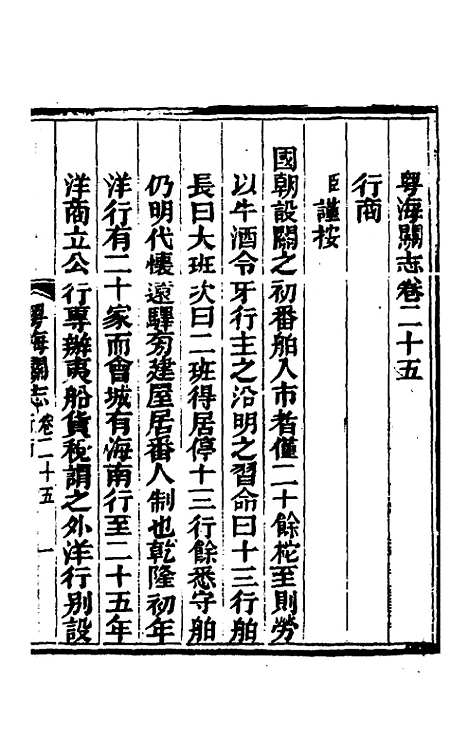 粤海關志卷二十五
行商
臣謹按
國朝設關之初番舶入市者僅二十餘柁至則勞
以牛酒令牙行主之沿明之習命曰十三行舶
長曰大班次曰二班得居停十三行餘悉守舶
仍明代懷遠驛旁建屋居番人制也乾隆初年
洋行有二十家而會城有海南行至二十五年
洋商立公行專辦夷船貨稅謂之外洋行別設
粤海關志 卷二十五 一